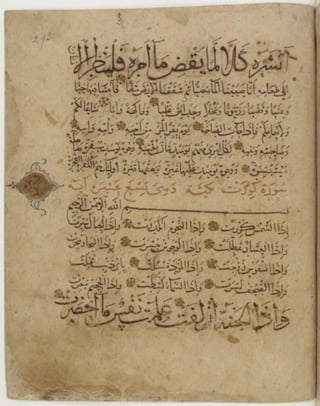 أنشره كلا لما يقض ما أمره فلينظر الإنسان
إلى طعامه أنا صببنا الماء صبا ثم شققنا الأرض شقا فأنبتنا فيها حبا
وعنبا وقضبا وزيتونا ونخلا وحدائق غلبا وفاكهة وأبا متاعا لكم
ولأنعامكم فإذا جاءت الصاخة يوم يفر المرء من أخيه وأمه وأبيه
وصاحبته وبنيه لكل امرئ منهم يومئذ شأن يغنيه وجوه يومئذ مسفرة ضاحكة
مستبشرة ووجوه يومئذ عليها غبرة ترهقها قترة أولئك هم الكفرة الفجرة
سورة كورت مكية وهي تسع عشرين آية
بسم الله الرحمن الرحيم
إذا الشمس كورت وإذا النجوم انكدرت وإذا الجبال سيرت
وإذا العشار عطلت وإذا الوحوش حشرت وإذا البحار سجرت
وإذا النفوس زوجت وإذا الموءودة سئلت بأي ذنب قتلت
وإذا الصحف نشرت وإذا السماء كشطت وإذا الجحيم سعرت
وإذا الجنة أزلفت علمت نفس ما أحضرت